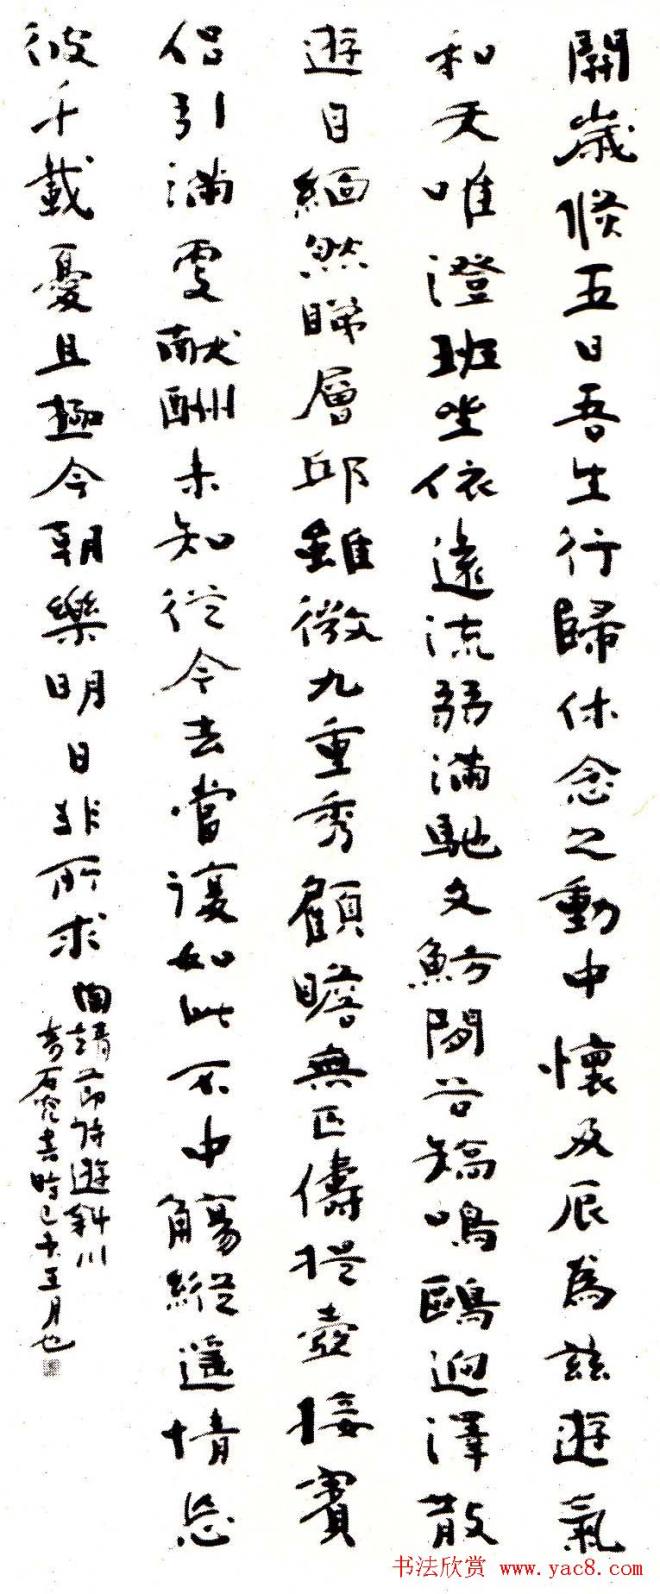 開歲倏五日吾生行歸休念之動中懷及辰為茲遊氣
和天唯澄班坐依遠流弱湍馳文魴閒谷矯鳴鷗迥澤散
遊目緬然睇層邱雖微九重秀顧瞻無匹儔提壺接賓
侶引滿更獻酬未知從今去當復如此不中觴縱遙情忘
彼千載憂且極今朝樂明日非所求
陶靖節詩遊斜川
石書時己未五月也
书法欣赏 www.yac8.com